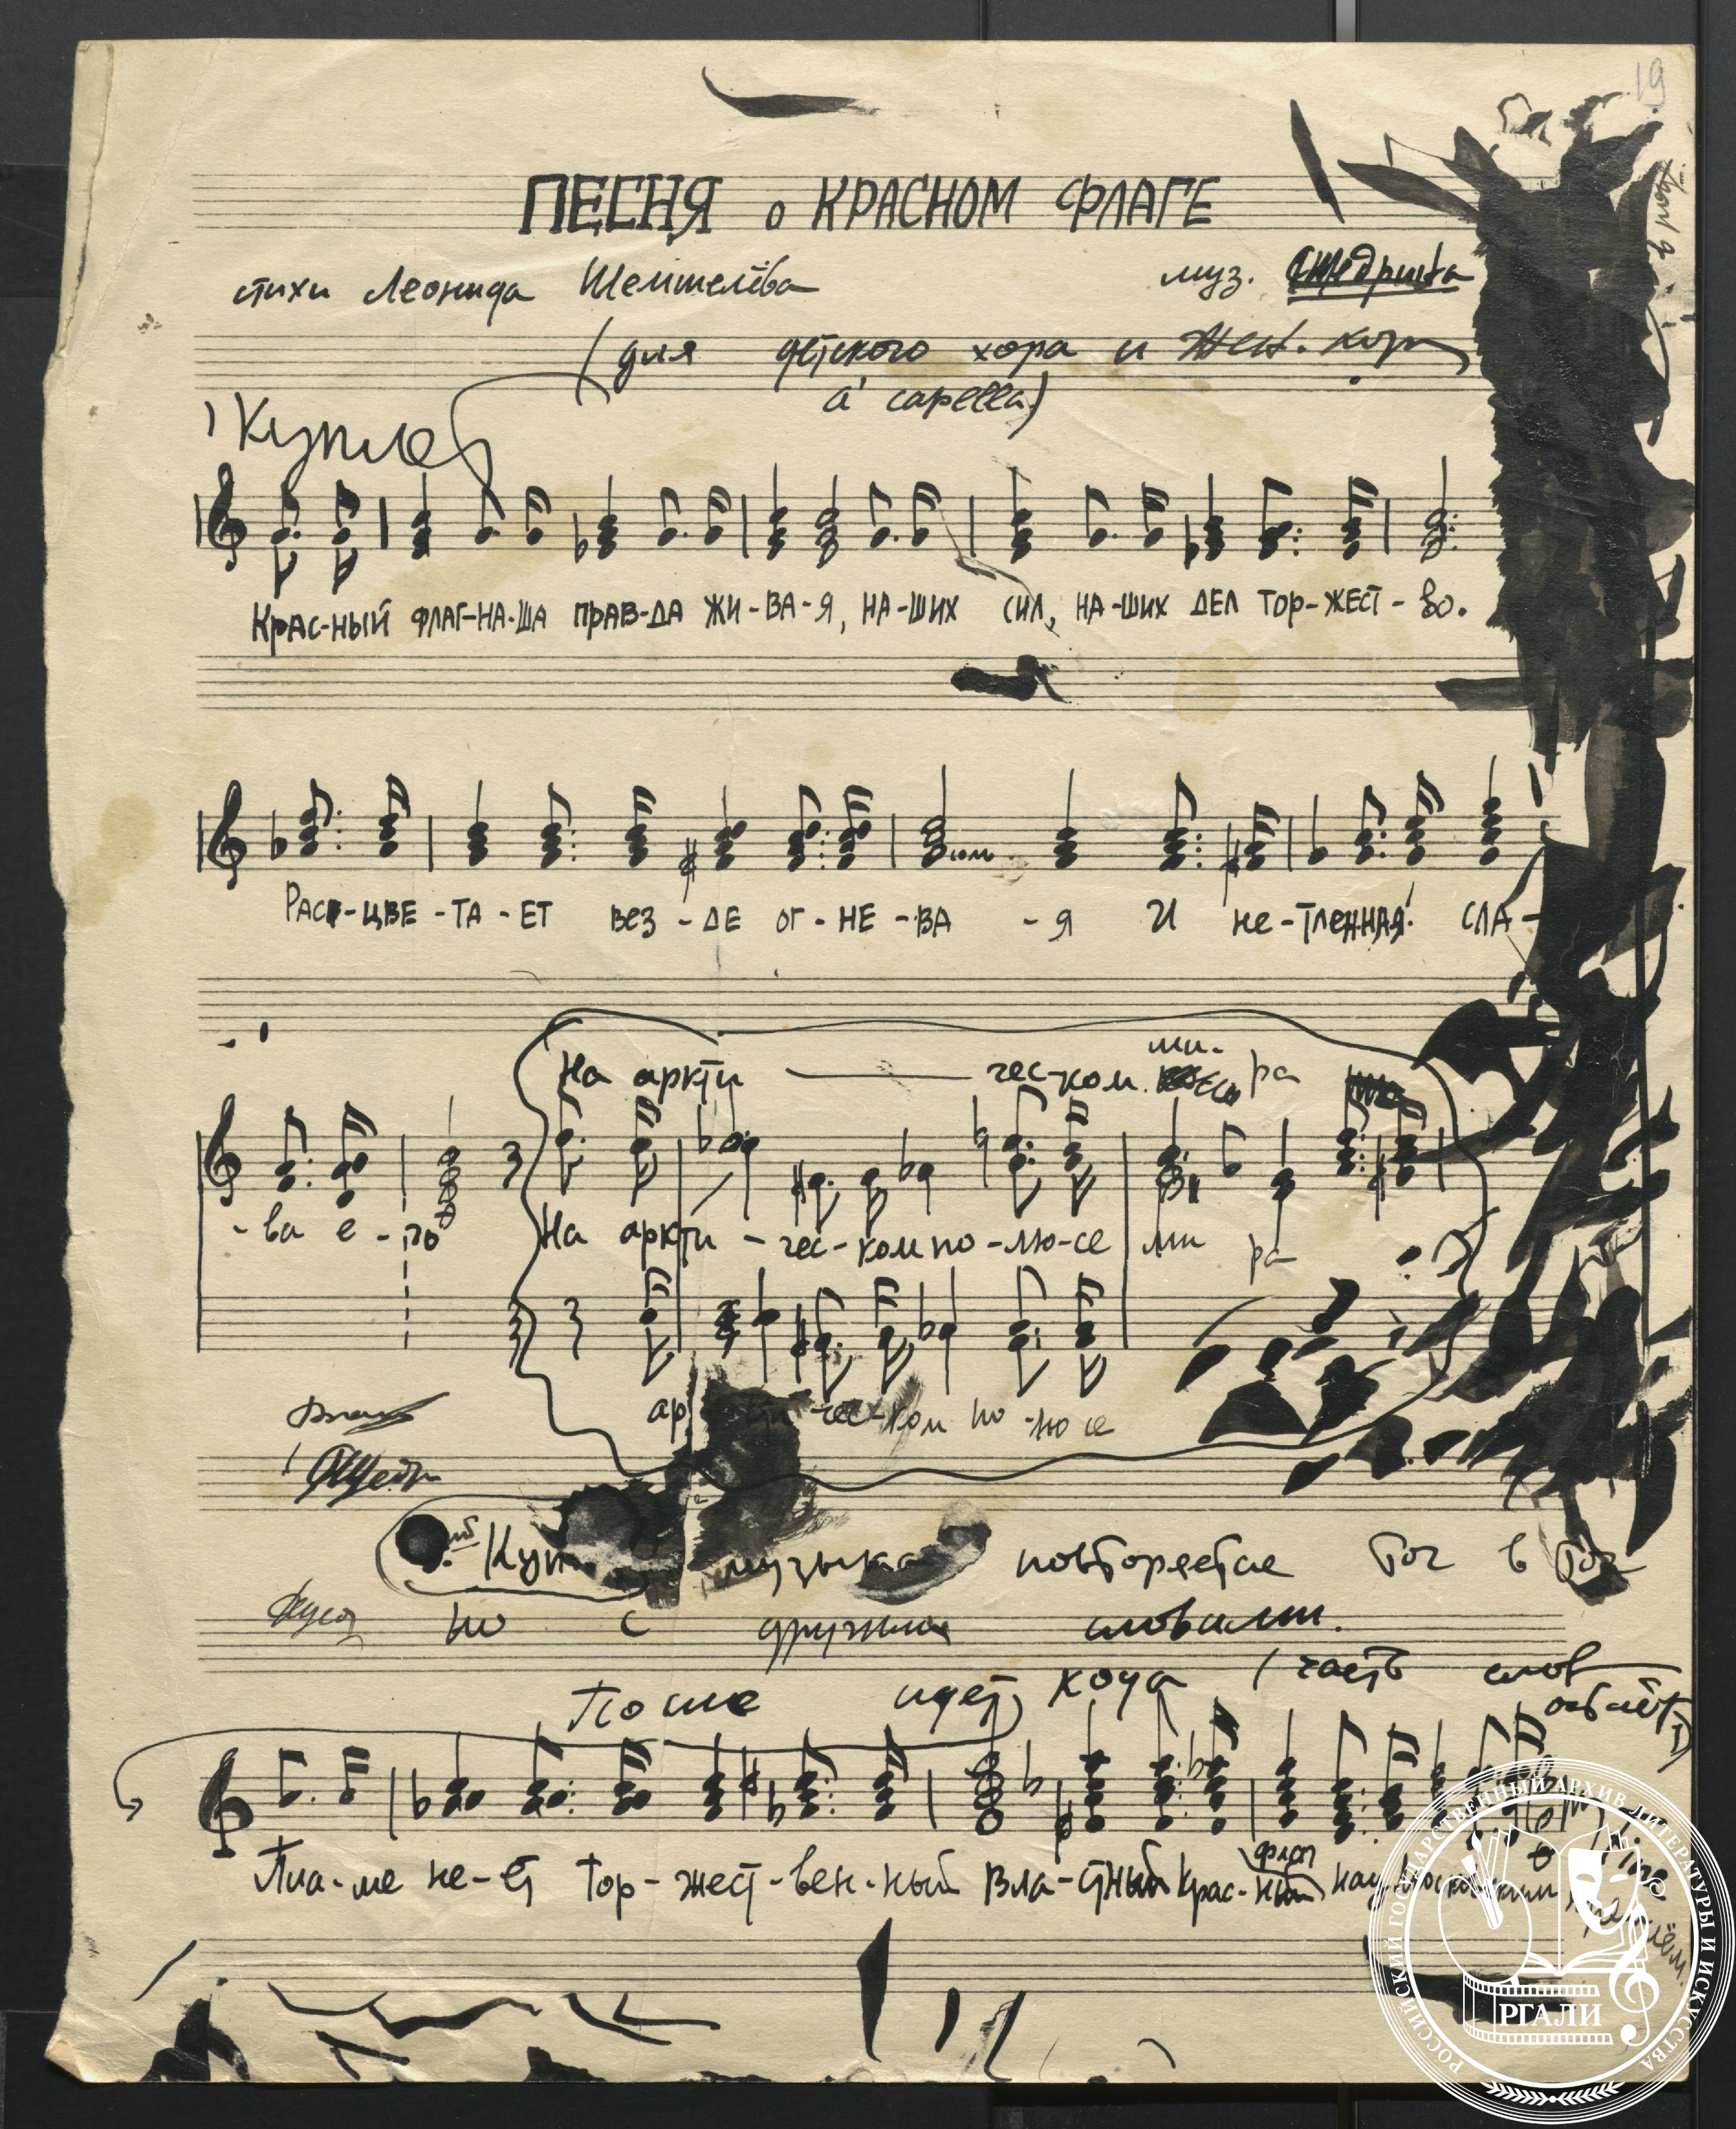 19
ПЕСНЯ о КРАСНОМ ФЛАГЕ
стихи Леонида Шемшелёва муз. Щедрина
(для детского хора и жен. хора
a capella)
1 Куплет
КРАС-НЫЙ ФЛАГ-НА-ША ПРАВ-ДА ЖИ-ВА-Я, НА-ШИХ СИЛ, НА-ШИХ ДЕЛ ТОР-ЖЕСТ-ВО.
РАС-ЦВЕ-ТА-ЕТ ВЕЗ-ДЕ ОГ-НЕ-ВА-Я И НЕ-ТЛЕННАЯ СЛА-
На аркти чес-ком ми-ра
-ва е-го На аркти-чес-ком по-лю-се ми ра
арк ти-чес-ком по-лю се
Щедр
Куп музыка повторяется точ в точ
но с другими словами.
После идет кода (часть слов
Пла-ме не-ет тор-жест-вен-ный вла-стный крас-ный флаг над московским
РОССИЙСКИЙ ГОСУДАРСТВЕННЫЙ АРХИВ ЛИТЕРАТУРЫ И ИСКУССТВА
РГАЛИ